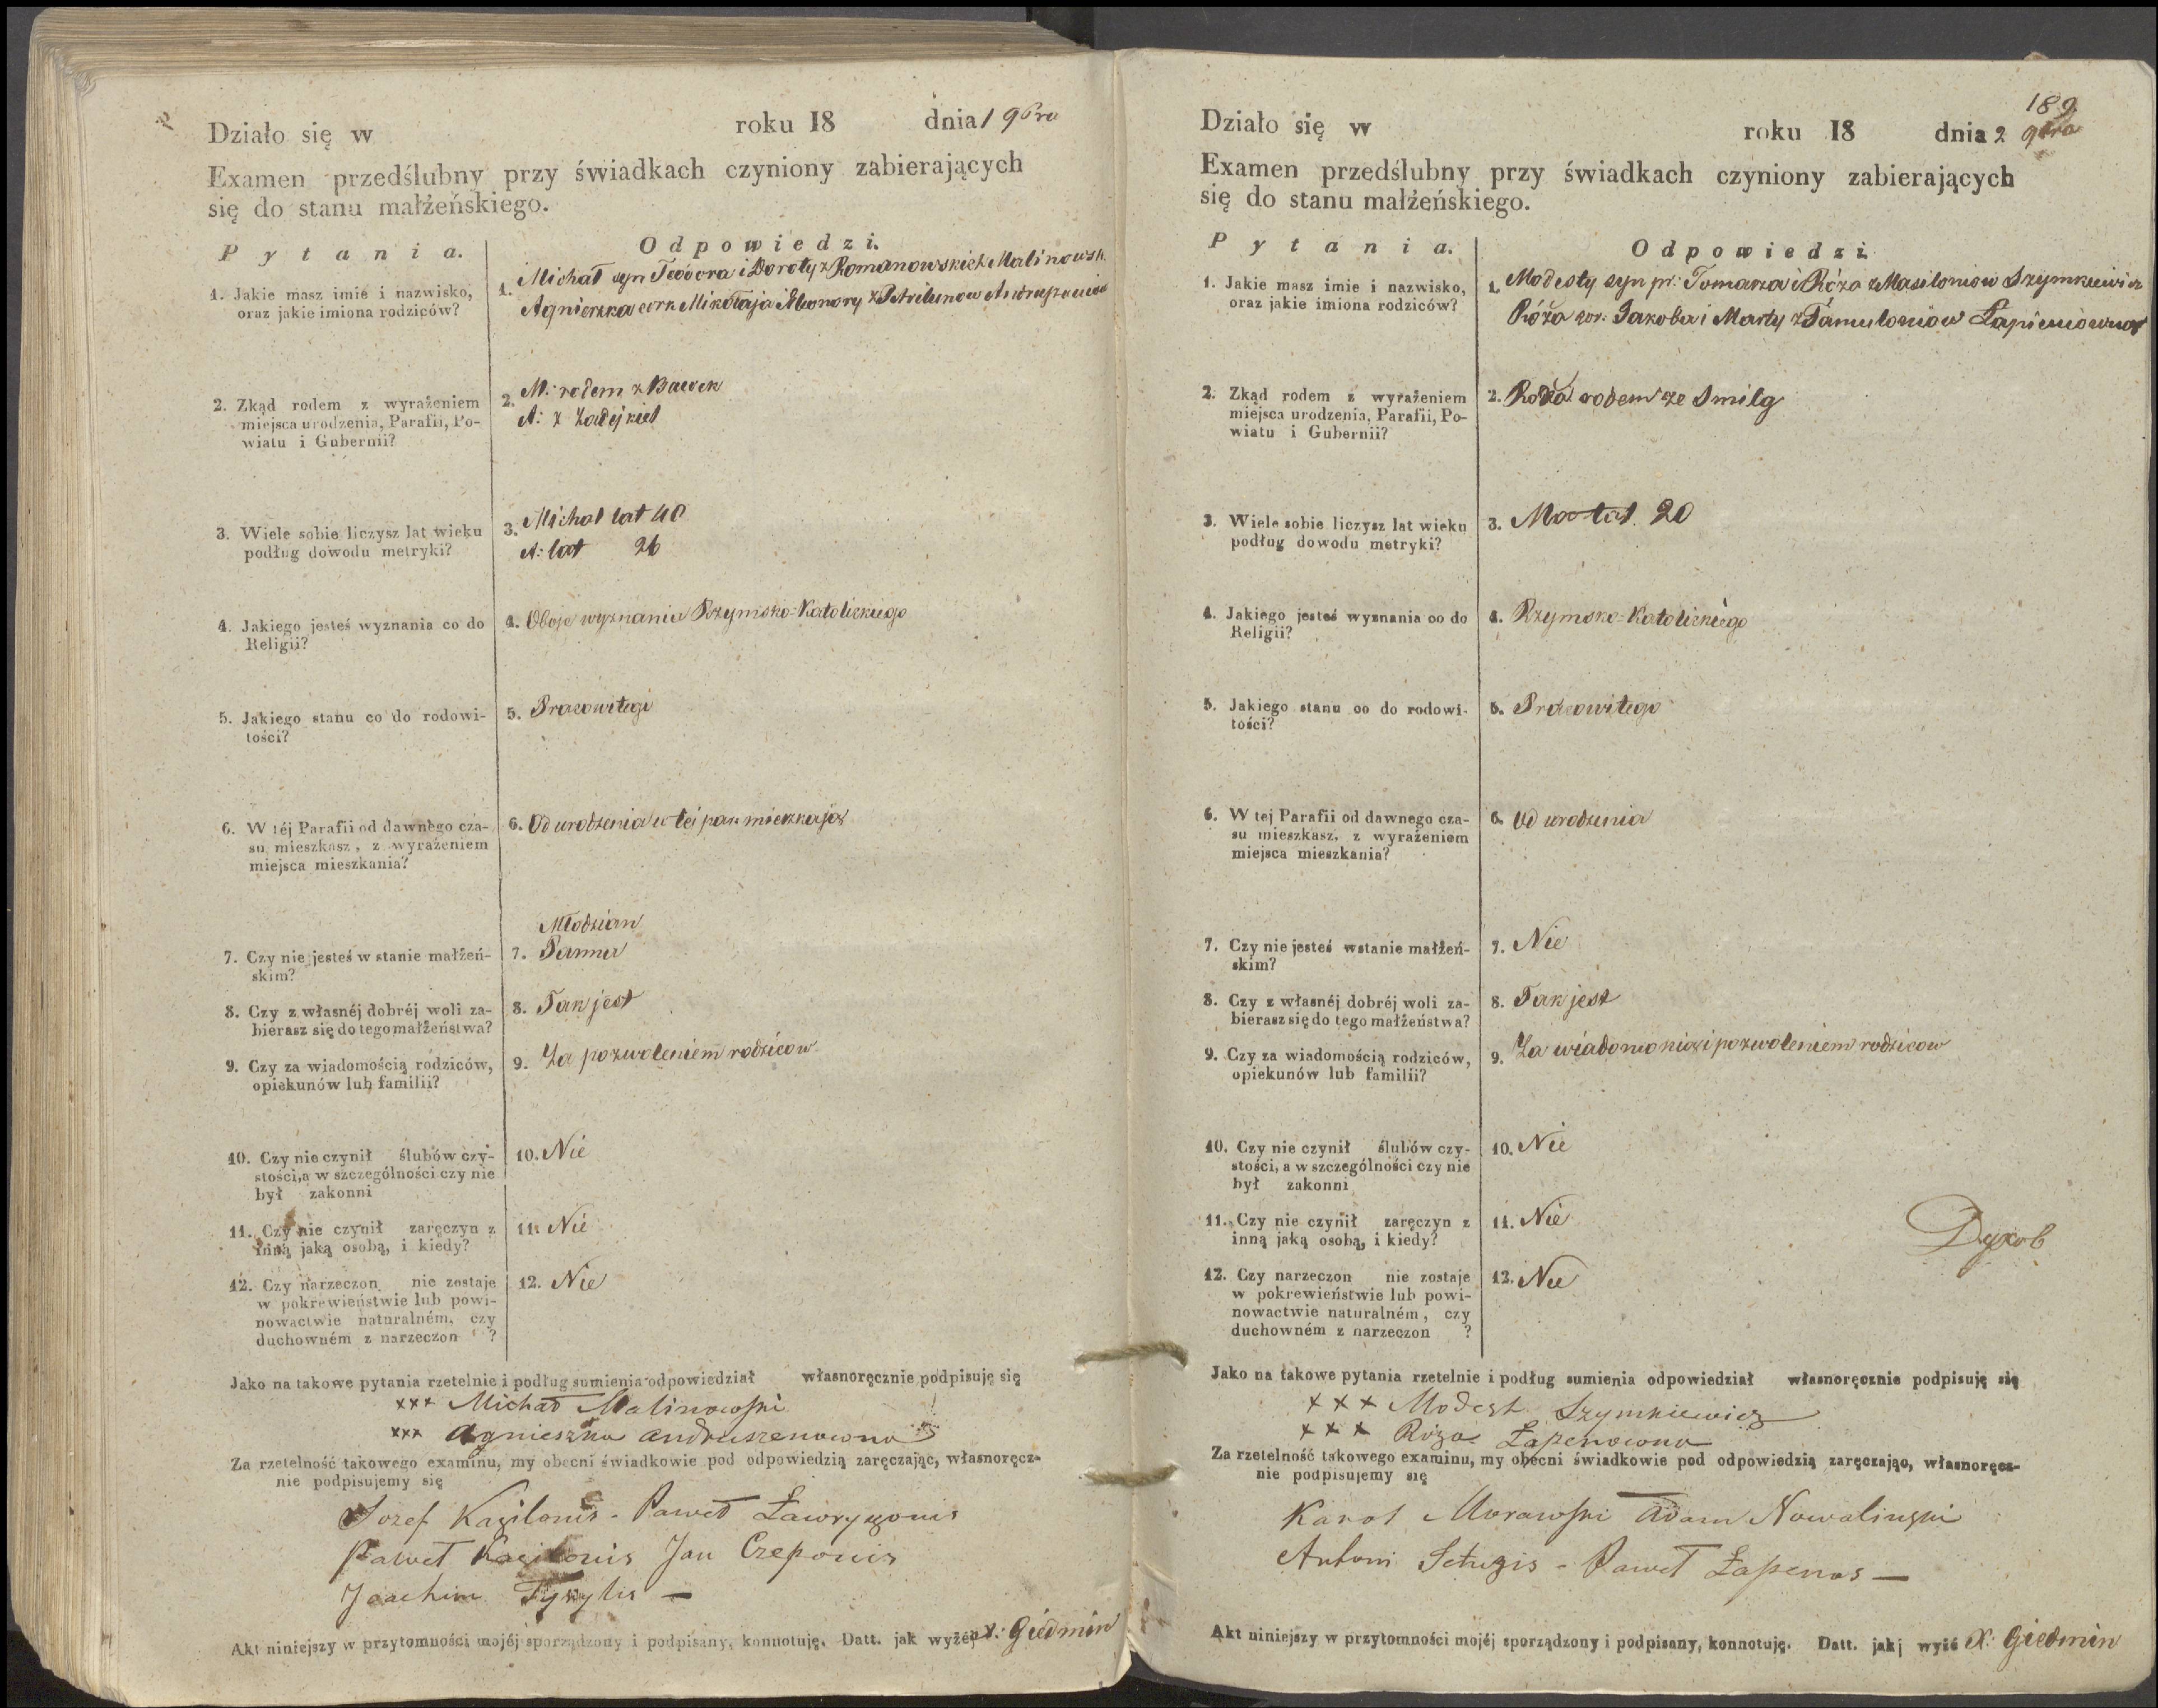 Działo się w roku 18 dnia 1 9bra
Examen przedślubny przy świadkach czyniony zabierających
się do stanu małżeńskiego.
Pytania.
Odpowiedzi.
1. Jakie masz imie i nazwisko,
oraz jakie imiona rodziców?
1. Michał syn Teodora i Doroty z Romanowskich Malinowsk
Agnieszka cork Mikołaja i Eleonory z
2. Zkąd rodem z wyrażeniem
miejsca urodzenia, Parafii, Po-
wiatu i Gubernii?
2. M: rodem z
A: z
3. Wiele sobie liczysz lat wieku
podług dowodu metryki?
3. Michał lat 40
A: lat 26
4. Jakiego jesteś wyznania co do
Religii?
4. Oboje wyznania Rzymsko=Katolickiego
5. Jakiego stanu co do rodowi-
tości?
5. Pracowitego
6. W téj Parafii od dawnego cza-
su mieszkasz, z wyrażeniem
miejsca mieszkania?
6. Od urodzenia w tej par: mieszkają
7. Czy nie jesteś w stanie małżeń-
skim?
Młodzian
7. Panna
8. Czy z własnéj dobréj woli za-
bierasz się do tego małżeństwa?
8. Tak jest
9. Czy za wiadomością rodziców,
opiekunów lub familii?
9. Za pozwoleniem rodzicow
10. Czy nie czynił ślubów czy-
stości, a w szczególności czy nie
był zakonni
10. Nie
11. Czy nie czynił zaręczyn z
inną jaką osobą, i kiedy?
11. Nie
12. Czy narzeczon nie zostaje
w pokrewieństwie lub powi-
nowactwie naturalném, czy
duchowném z narzeczon ?
12. Nie
Jako na takowe pytania rzetelnie i podług sumienia odpowiedział własnoręcznie podpisuję się
xxx Michał Malinowski
xxx Agnieszka Andruszenowna
Za rzetelność takowego examinu, my obecni świadkowie pod odpowiedzią zaręczając, własnoręcz-
nie podpisujemy się
Jozef Kazilonis - Paweł Ławrynonis
Paweł Kazilonis Jan Czeponis
Joachim
Akt niniejszy w przytomności mojéj sporządzony i podpisany, konnotuję. Datt. jak wyżéj X: Giedmin
189
Działo się w roku 18 dnia 2 9bra
Examen przedślubny przy świadkach czyniony zabierających
się do stanu małżeńskiego.
Pytania.
Odpowiedzi.
1. Jakie masz imie i nazwisko,
oraz jakie imiona rodziców?
1. Modesty syn pr: Tomasza i Róża z Masiloniow Szymkiewicz
Róża cor: Jakoba i Marty z Tamuloniow Łapieniowna
2. Zkąd rodem z wyrażeniem
miejsca urodzenia, Parafii, Po-
wiatu i Gubernii?
2. Róża rodem ze Smilg
3. Wiele sobie liczysz lat wieku
podług dowodu metryki?
3. Ma lat 20
4. Jakiego jesteś wyznania co do
Religii?
4. Rzymsko=Katolickiego
5. Jakiego stanu co do rodowi-
tości?
5. Pracowitego
6. W tej Parafii od dawnego cza-
su mieszkasz, z wyrażeniem
miejsca mieszkania?
6. Od urodzenia
7. Czy nie jesteś wstanie małżeń-
skim?
7. Nie
8. Czy z własnéj dobréj woli za-
bierasz się do tego małżeństwa?
8. Tak jest
9. Czy za wiadomością rodziców,
opiekunów lub familii?
9. Za wiadomością i pozwoleniem rodzicow
10. Czy nie czynił ślubów czy-
stości, a w szczególności czy nie
był zakonni
10. Nie
11. Czy nie czynił zaręczyn z
inną jaką osobą, i kiedy?
11. Nie
12. Czy narzeczon nie zostaje
w pokrewieństwie lub powi-
nowactwie naturalném, czy
duchowném z narzeczon ?
12. Nie
Jako na takowe pytania rzetelnie i podług sumienia odpowiedział własnoręcznie podpisuję się
xxx Modest Szymkiewicz
xxx Róża Łapenowna
Za rzetelność takowego examinu, my obecni świadkowie pod odpowiedzią zaręczając, własnoręcz-
nie podpisujemy się
Karol Morawski Adam Nowalinski
Antoni - Paweł Łapenas
Akt niniejszy w przytomności mojéj sporządzony i podpisany, konnotuję. Datt. jakj wyżé X: Giedmin